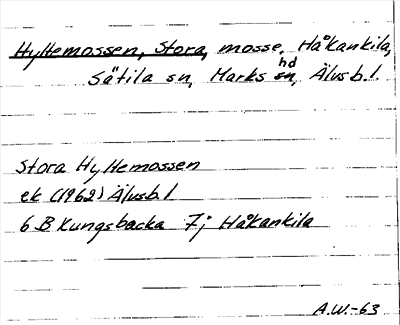 Hyltemossen, Stora, mosse, Håkankila,
Sätila sn, Marks hd, Älvsb.l.
Stora Hyltemossen
ek (1962) Älvsb.l
6 B Kungsbacka 7j Håkankila
A.W.-63